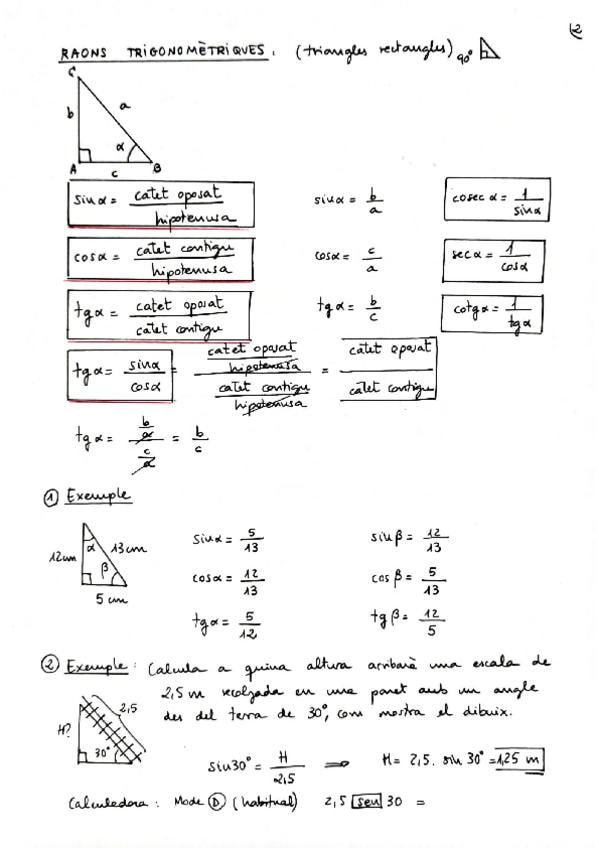 2
RAONS TRIGONOMÈTRIQUES. (triangles rectangles) 90°
C
b a
α
A c B
sin α = catet oposat / hipotenusa sin α = b/a cosec α = 1/sin α
cos α = catet contigu / hipotenusa cos α = c/a sec α = 1/cos α
tg α = catet oposat / catet contigu tg α = b/c cotg α = 1/tg α
tg α = sin α / cos α = catet oposat / hipotenusa / catet contigu / hipotenusa = catet oposat / catet contigu
tg α = b/a / c/a = b/c
① Exemple
12cm α 13cm β 5 cm
sin α = 5/13 sin β = 12/13
cos α = 12/13 cos β = 5/13
tg α = 5/12 tg β = 12/5
② Exemple: Calcula a quina altura arribarà una escala de
2,5 m recolzada en una paret amb un angle
des del terra de 30°, com mostra el dibuix.
H? 2,5 30°
sin 30° = H/2,5 ⇒ H = 2,5 . sin 30° = 1,25 m
Calculadora: Mode D (habitual) 2,5 sen 30 =